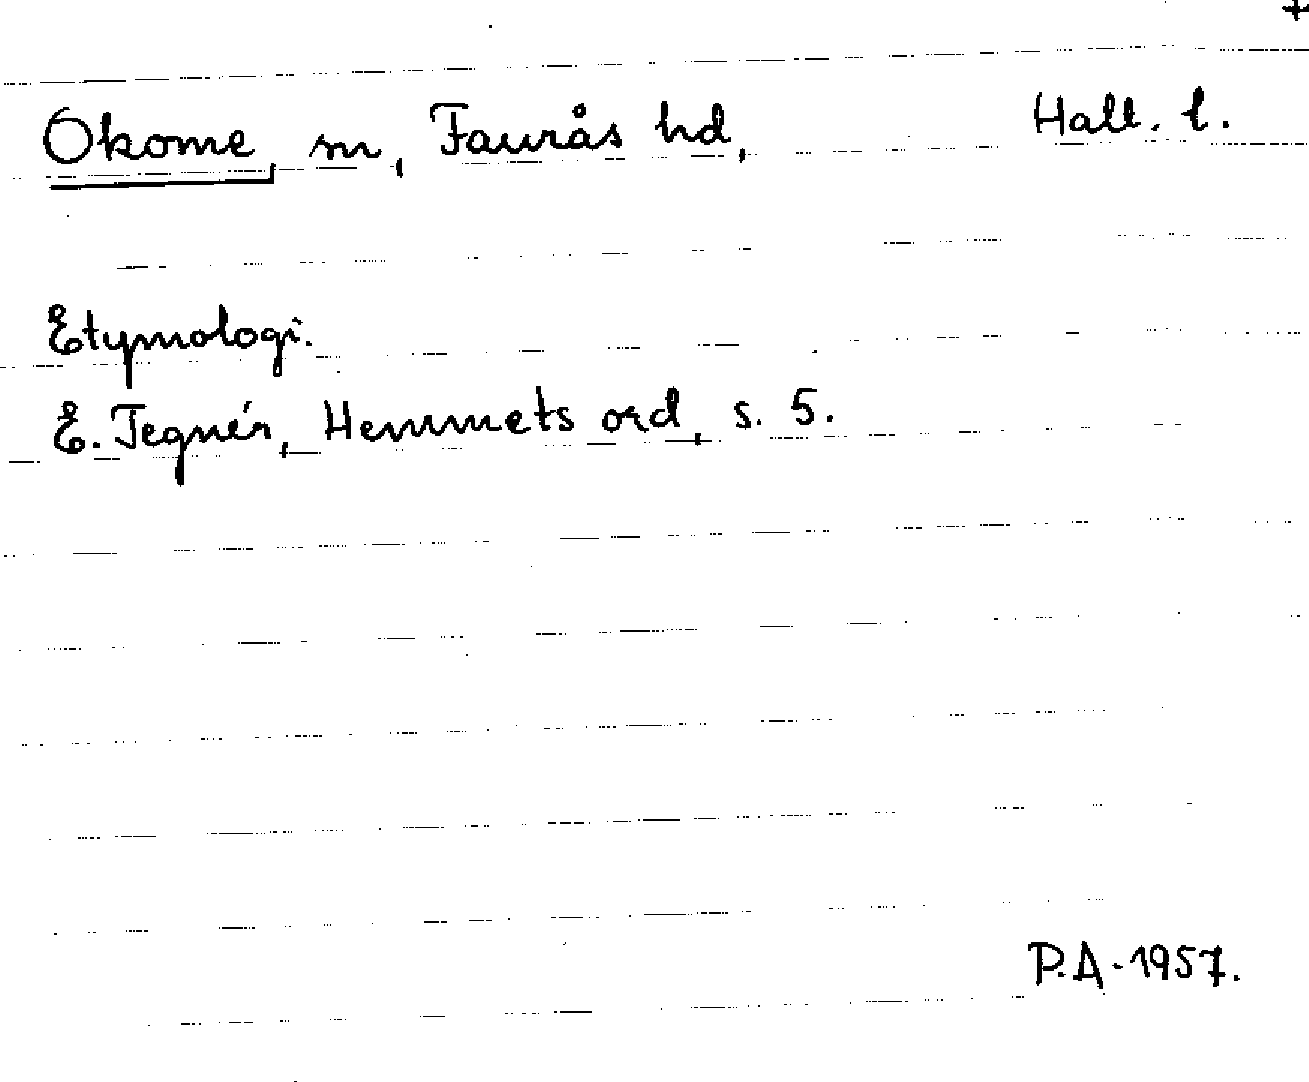 +
Okome, m, Faurås hd, Hall. l.
Etymologi.
E. Tegnér, Hemmets ord, s. 5.
P.A. 1957.